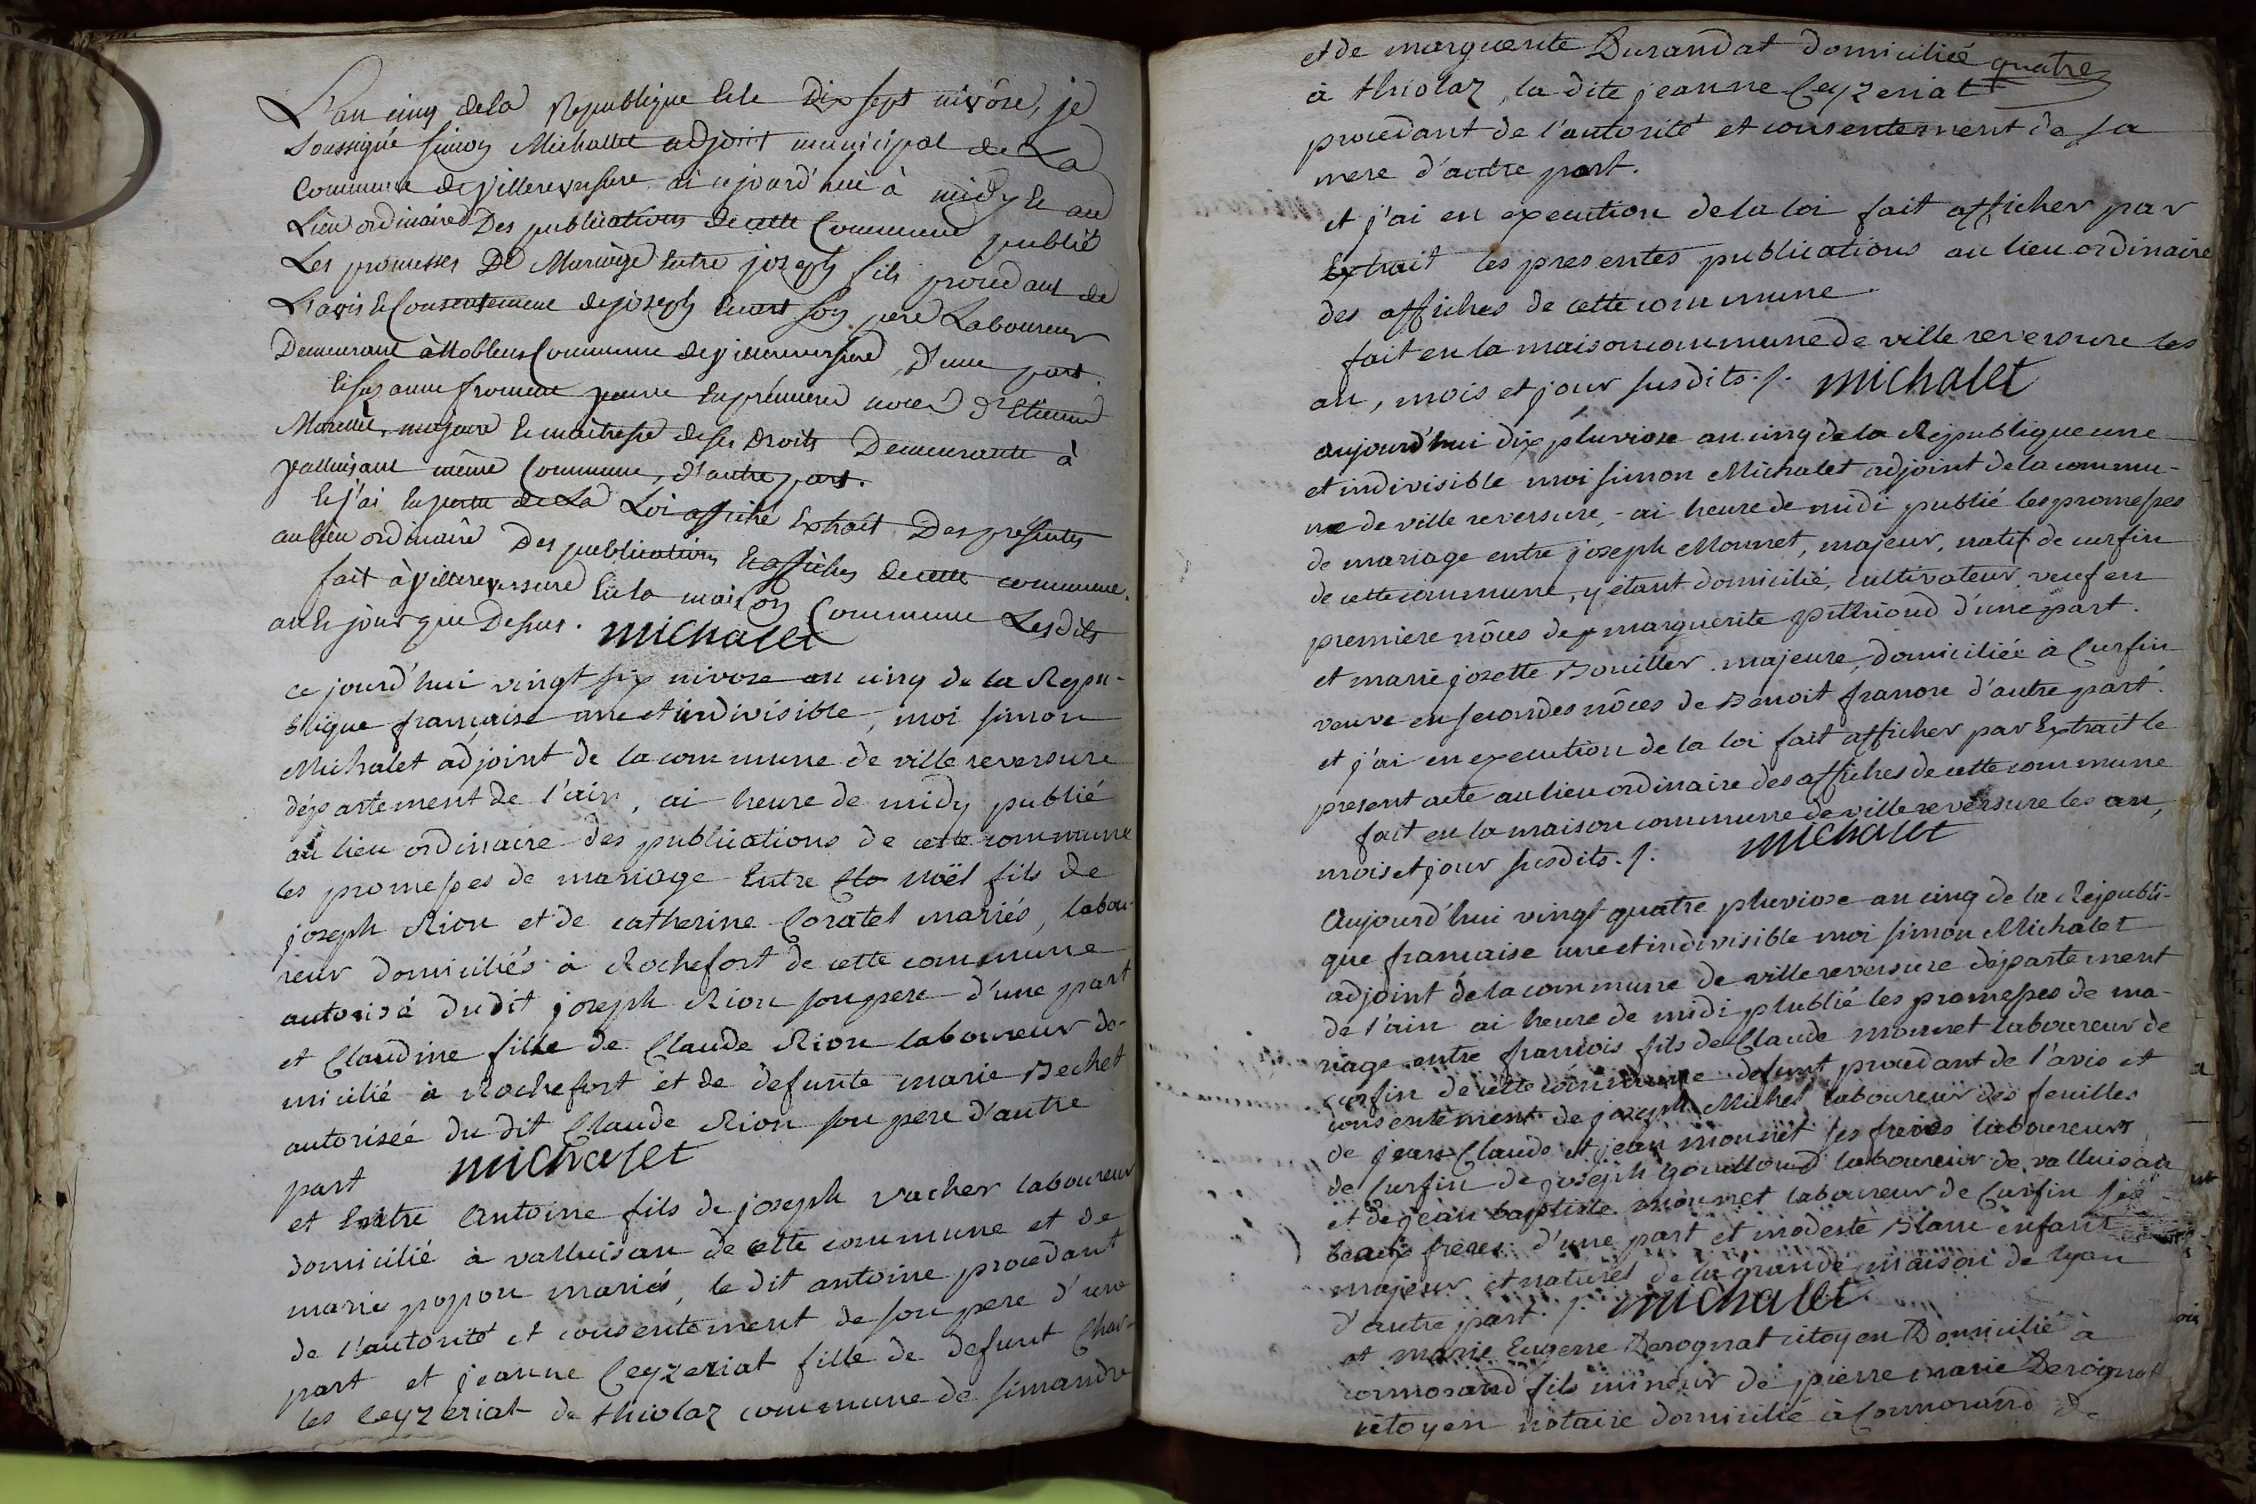 L'an cinq de la Republique & le Dix sept nivôse, je
soussigné simon Michallet adjoint municipal de La
Commune de Villereversure ai cejourd'hui à midy & au
Lieu ordinaire Des publications de cette Commune publié
Les promesses De Mariage Entre joseph fils procedant de
L'avis & Consentement de joseph son pere Laboureur
Demeurant à Commune de Villereversure, D'une part.
& suzanne froment veuve En premieres noces d'Etienne
majeure & maitresse de ses Droits Demeurante à
valluisant même Commune, d'autre part.
& j'ai En vertu de La Loi affiché Extrait Des presentes
au lieu ordinaire Des publications & affiches de cette commune.
fait à Villereversure En la maison Commune Lesdits
an & jour que Dessus. michalet
ce jourd'hui vingt six nivose an cinq de la Repu-
blique française une et indivisible, moi simon
Michalet adjoint de la commune de ville reversure
département de l'ain, ai heure de midy publié
au lieu ordinaire des publications de cette commune
les promesses de mariage Entre Noël fils de
joseph Rion et de catherine Coratel mariés, labou-
reur domiciliés à Rochefort de cette commune
autorisé dudit joseph Rion son pere d'une part
et Claudine fille de Claude Rion laboureur do-
micilié à Rochefort et de defunte marie Bechet
autorisée du dit Claude Rion son pere d'autre
part michalet
et Entre Antoine fils de joseph vacher laboureur
domicilié à valluisan de cette commune et de
marie popon mariés, le dit antoine procedant
de l'autorité et consentement de son pere d'une
part et jeanne Ceyzeriat fille de defunt Char-
les Ceyzeriat de thiolaz commune de simandre
et de marguerite Durandat domiciliée quatre
à thiolaz, la dite jeanne Ceyzeriat
procedant de l'autorité et consentement de sa
mere d'autre part.
et j'ai en execution de la loi fait afficher par
Extrait les presentes publications au lieu ordinaire
des affiches de cette commune.
fait en la maison commune de ville reversure les
an, mois et jour susdits./. michalet
aujourd'hui dix pluviose an cinq de la Republique une
et indivisible moi simon Michalet adjoint de la commu-
ne de ville reversure, - ai heure de midi publié les promesses
de mariage entre joseph Monnet, majeur, natif de curfin
de cette commune, y étant domicilié, cultivateur, veuf en
premiere nôces de marguerite pithioud d'une part.
et marie josette Bouiller majeure, domiciliée à Curfin
veuve en secondes nôces de Benoit franon d'autre part.
et j'ai en execution de la loi fait afficher par Extrait le
present acte au lieu ordinaire des affiches de cette commune
fait en la maison commune de ville reversure les an,
mois et jour susdits./. michalet
Aujourd'hui vingt quatre pluviose an cinq de la Republi-
que francaise une et indivisible moi simon Michalet
adjoint de la commune de ville reversure département
de l'ain ai heure de midi plublié les promesses de ma-
riage entre francois fils de Claude monnet laboureur de
curfin de cette commune defunt procedant de l'avis et
consentement de joseph Michel laboureur des feuilles
de jean Claude et jean monnet ses freres laboureurs
de Curfin de joseph gouilloud laboureur de valluisan
et de jean baptiste monnet laboureur de Curfin ses
beaux freres d'une part et modeste Blanc enfant
majeur et naturel de la grande maison de lyon
d'autre part./. michalet
et marie Eugene Derognat citoyen Domicilié à
cormorand fils mineur de pierre marie Derognat
citoyen notaire domicilié à Cormorand de